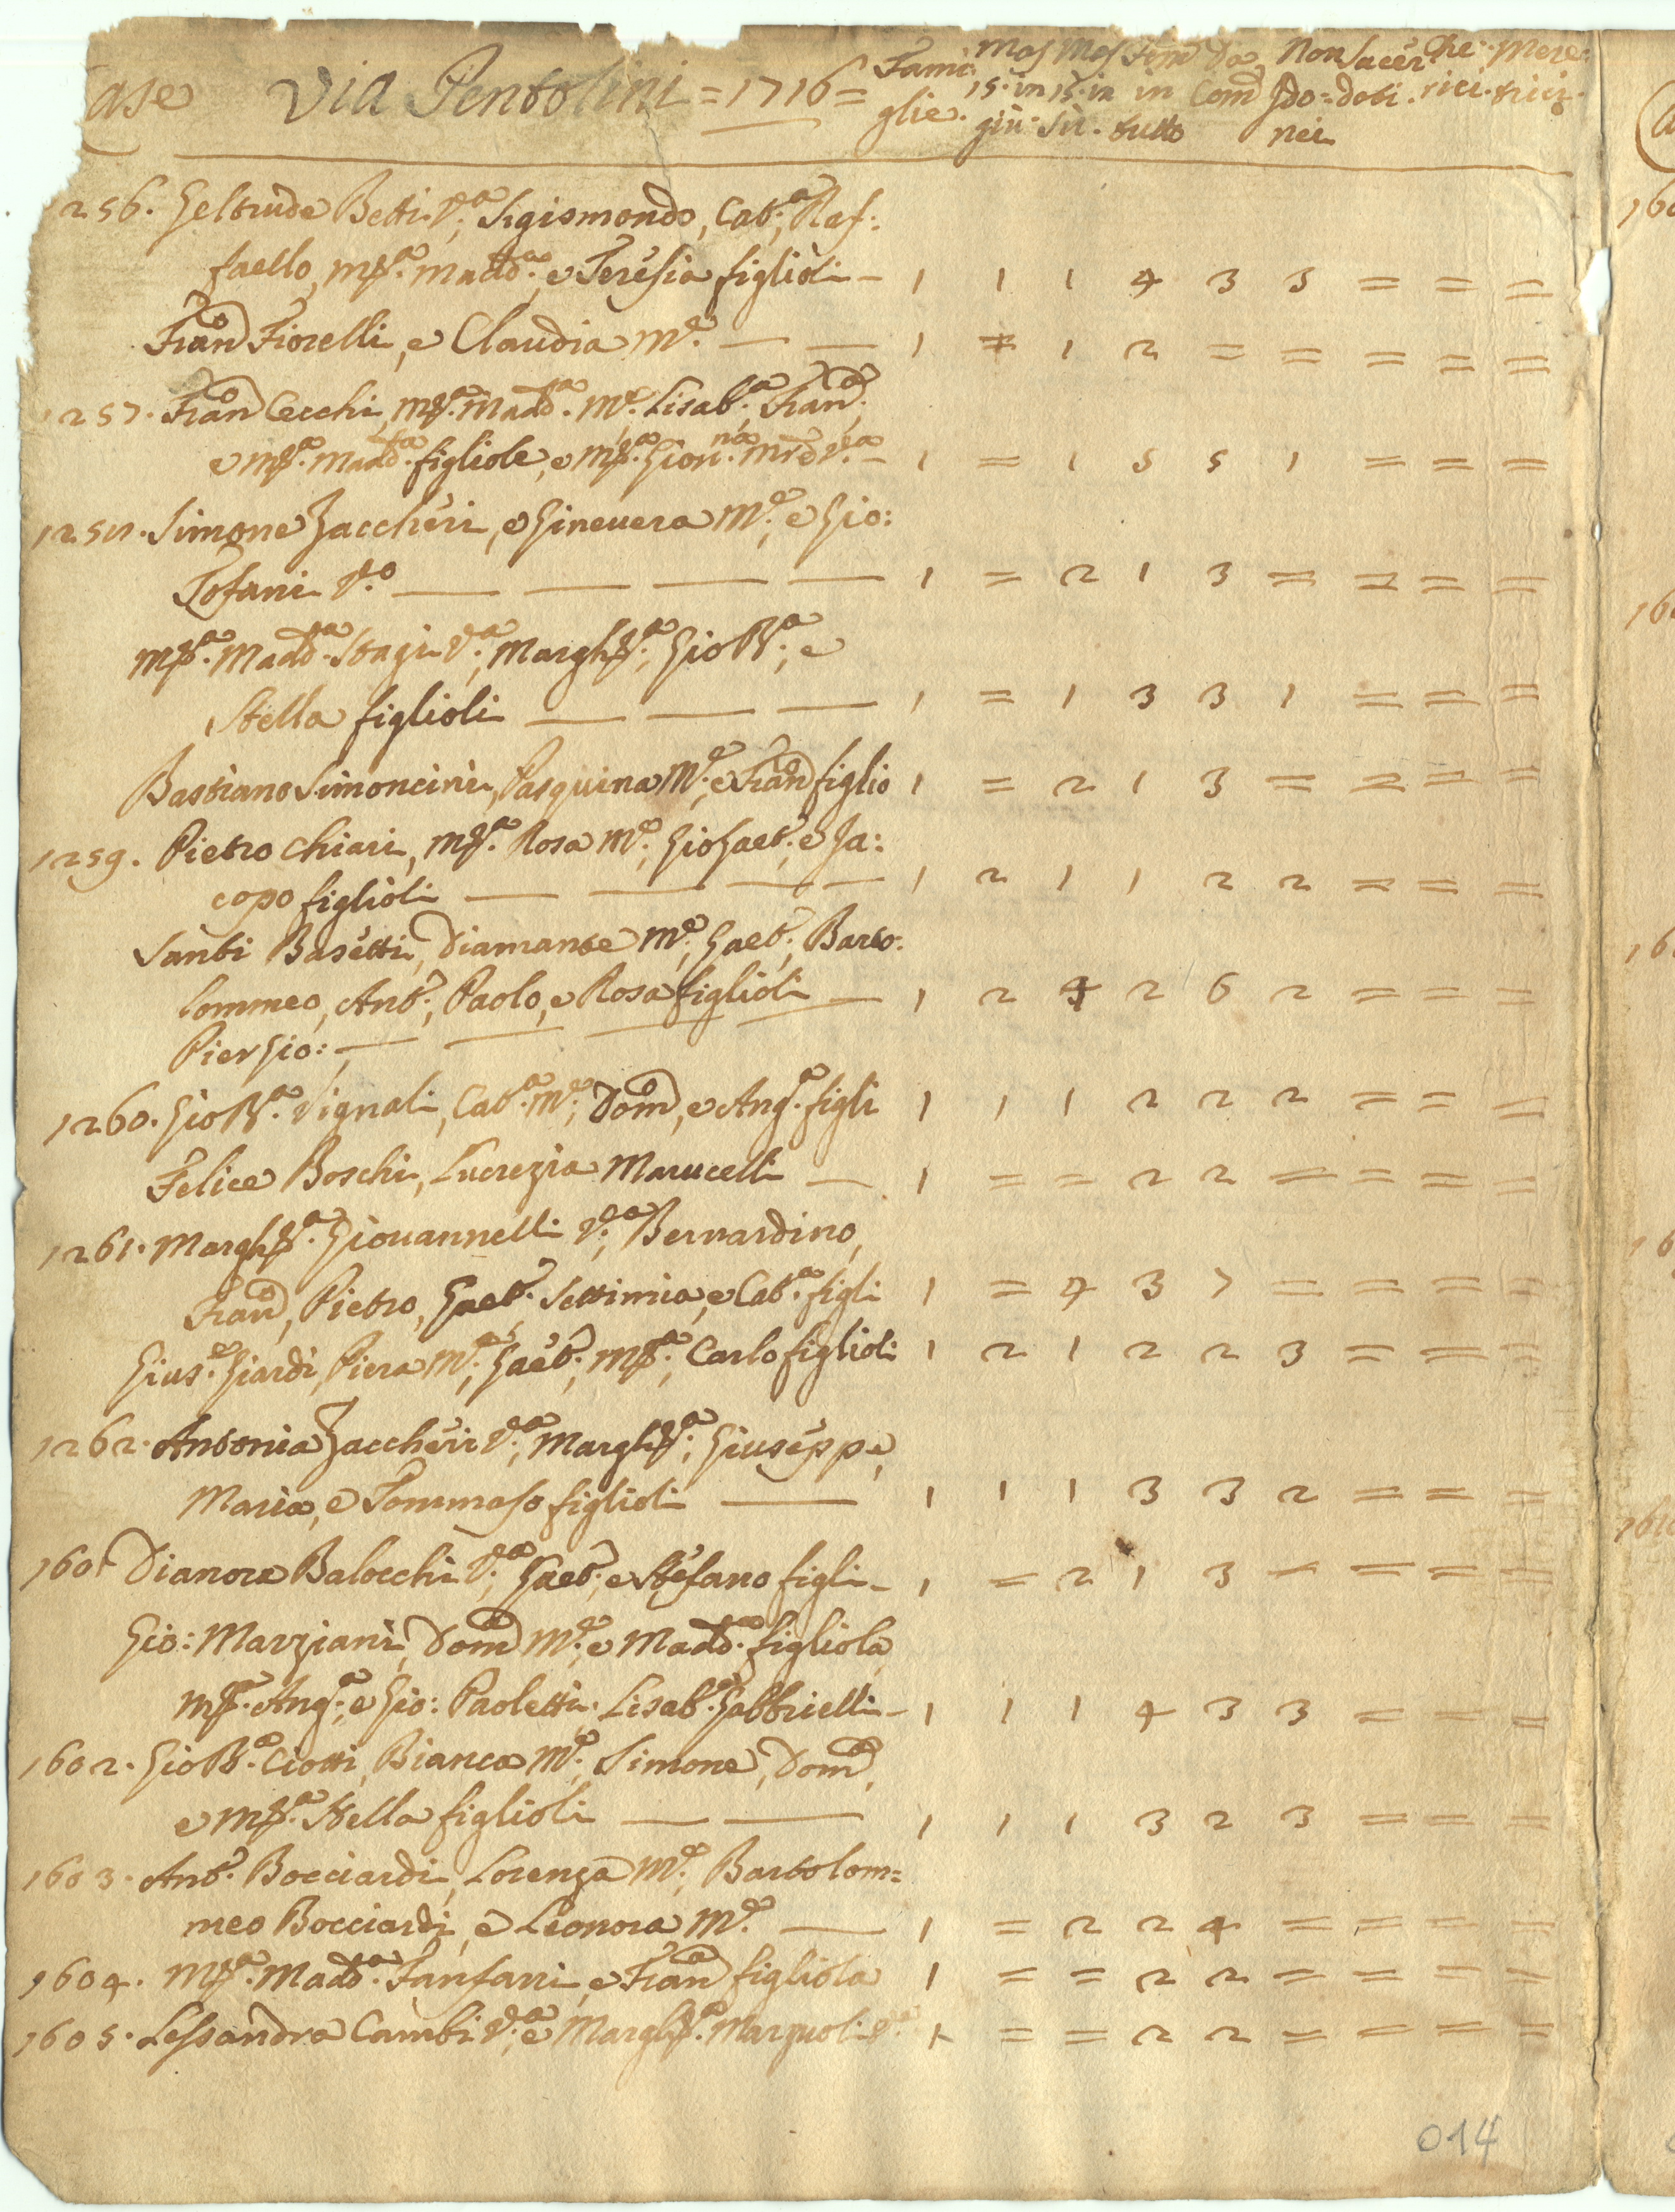 ase Via Pentolini = 1716 = Fami glie. Mas 15. in giù. Mas 15. in sù. Fem in tutto Da Com Non Ido= nei Sacer doti. Che rici. Mere trici.
1256. Geltrude Betti V.ª; Sigismondo, Cat.ª; Raf:
faello, Mª. Madd.ª, e Teresia figlioli — 1 1 1 4 3 3 = = =
Fran.º Fiorelli, e Claudia M.e — — 1 = 1 2 = = = = =
1257. Fran.º Cecchi, Mª. Madd.ª M.e Lisab.ª, Fran.ª
e Mª. Madd.ª figliole, e Mª. Giov.na Mrẽ V.ª — 1 = 1 5 5 1 = = =
1258. Simone Zaccheri, e Gineuera M.e; e Gio:
Tofani V.º — — — — 1 = 2 1 3 = = = =
Mª. Madd.ª Stagi V.ª; Margh.ª; Gio B.ª; e
Stella figlioli — — — 1 = 1 3 3 1 = = =
Bastiano Simoncini, Pasquina M.e; e Fran.º figlio 1 = 2 1 3 = = = =
1259. Pietro Chiari, Mª. Rosa M.e; Gio Gaet.º; e Ja:
copo figlioli — — — — 1 2 1 1 2 2 = = =
Santi Basetti, Diamante M.e; Gaet.º; Barto.
lommeo, Ant.º; Paolo, e Rosa figlioli — 1 2 4 2 6 2 = = =
Pier Gio: — — — —
1260. Gio B.ª Vignali, Cat.ª M.e; Dom.º, e Ang.ª figli 1 1 1 2 2 2 = = =
Felice Boschi, Lucrezia Marucelli — 1 = = 2 2 = = = =
1261. Margh.ª Giouannelli V.ª; Bernardino,
Fran.º, Pietro, Gaet.º Settimia, e Cat.ª figli 1 = 4 3 7 = = = =
Gius.e Giardi, Piera M.e; Gaet.º; Mª.; Carlo figlioli 1 2 1 2 2 3 = = =
1262. Antonia Zaccheri V.ª; Margh.ª; Giuseppe,
Maria, e Tommaso figlioli — 1 1 1 3 3 2 = = =
1601 Dianora Balocchi V.ª; Gaet.º; e Stefano figli — 1 = 2 1 3 = = = =
Gio: Marziani, Dom.ª M.e; e Madd.ª figliola,
Mª. Ang.ª; e Gio: Paoletti. Lisab.ª Gabbrielli — 1 1 1 4 3 3 = = =
1602. Gio B.ª Ciotti, Bianca M.e; Simone, Dom.ª,
e Mª. Stella figlioli — — 1 1 1 3 2 3 = = =
1603. Ant.º Bocciardi, Lorenza M.e; Bartolom=
meo Bocciardi, e Leonora M.e — 1 = 2 2 4 = = = =
1604. Mª. Madd.ª Fanfani, e Fran.ª figliola 1 = = 2 2 = = = =
1605. Lessandra Cambi V.ª; e Margh.ª Marzuoli V.ª 1 = = 2 2 = = = =
014